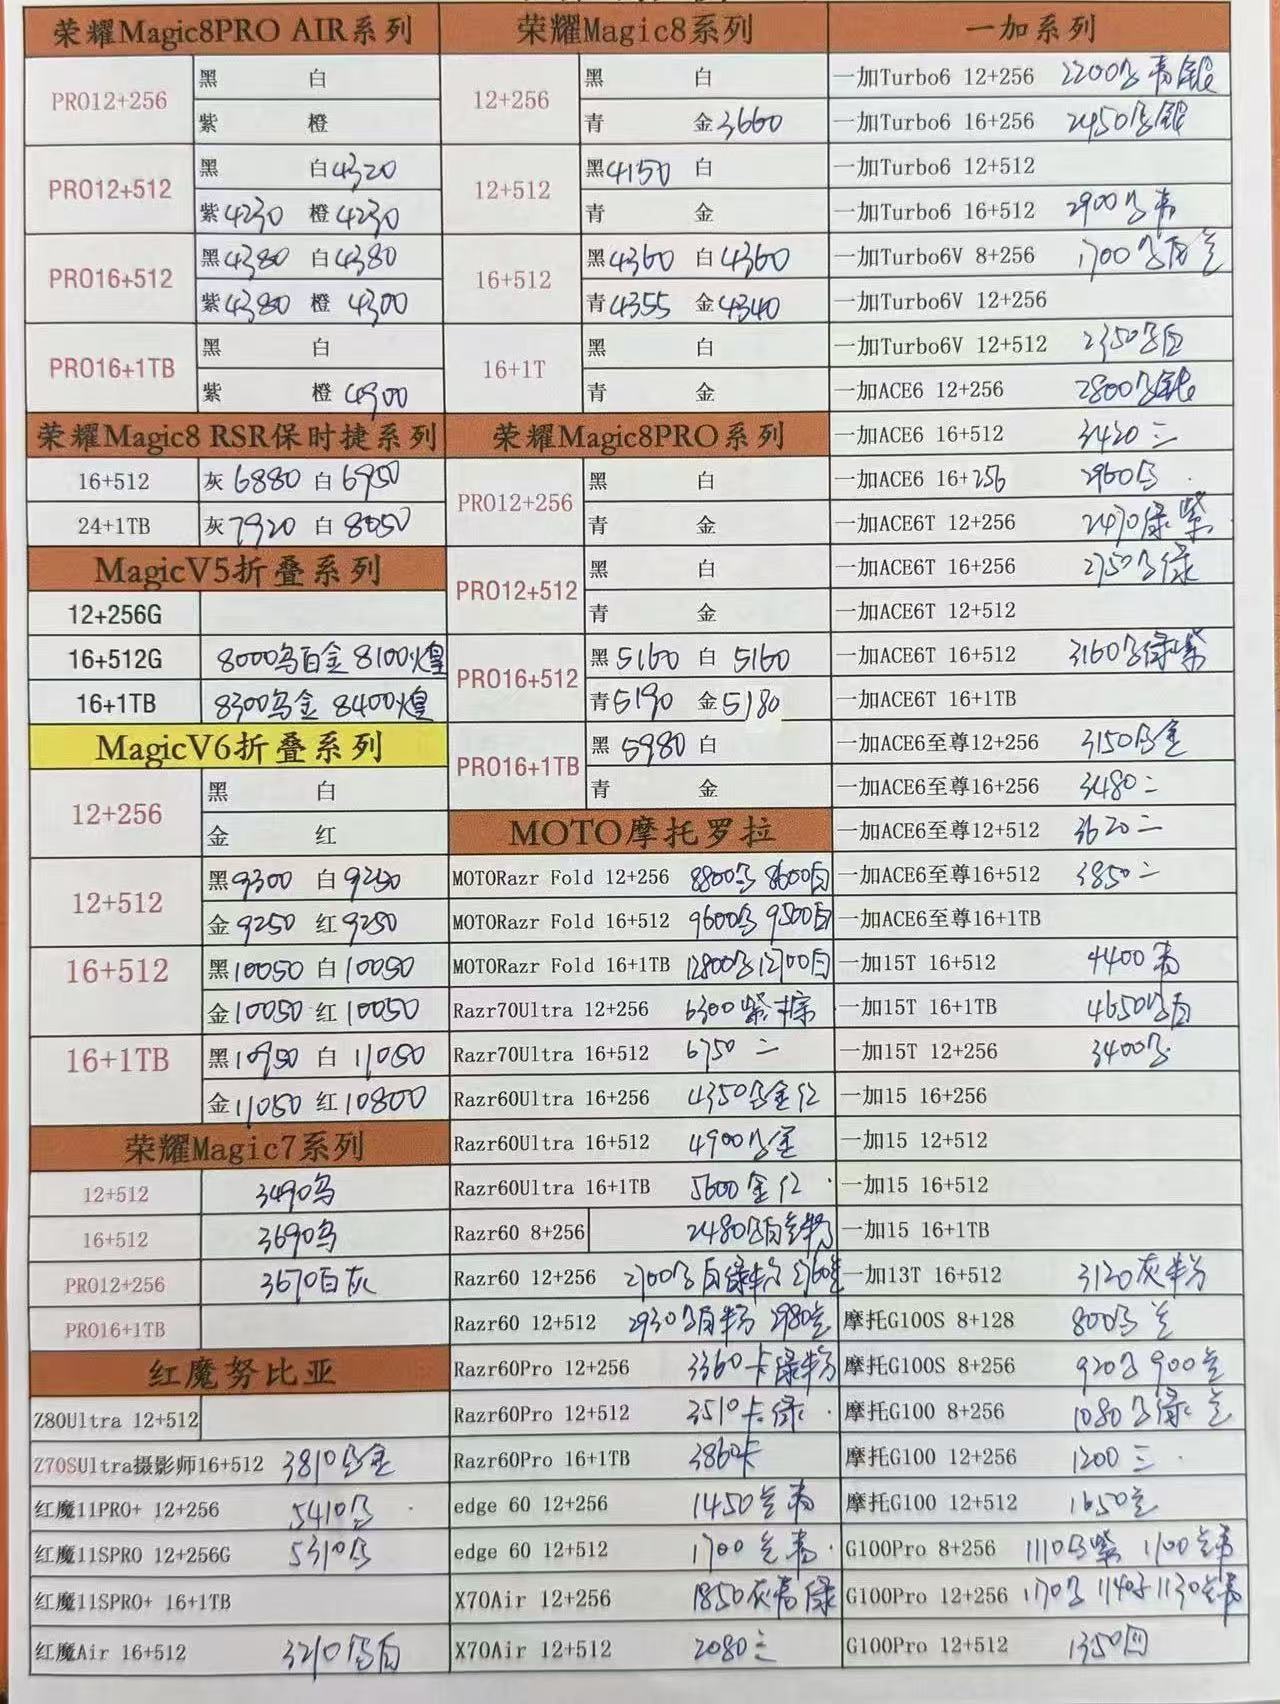 荣耀Magic8PRO AIR系列
PRO12+256
黑 白
紫 橙
PRO12+512
黑 白4320
紫4230 橙4230
PRO16+512
黑4380 白4380
紫4380 橙4300
PRO16+1TB
黑 白
紫 橙4900
荣耀Magic8 RSR保时捷系列
16+512 灰6880 白6950
24+1TB 灰7920 白8050
MagicV5折叠系列
12+256G
16+512G 8000乌白金 8100煌
16+1TB 8300乌金 8400煌
MagicV6折叠系列
12+256
黑 白
金 红
12+512
黑9300 白9250
金9250 红9250
16+512
黑10050 白10050
金10050 红10050
16+1TB
黑10950 白11050
金11050 红10800
荣耀Magic7系列
12+512 3490乌
16+512 3690乌
PRO12+256 3670白灰
PRO16+1TB
红魔努比亚
Z80Ultra 12+512
Z70SUltra摄影师16+512 3810乌金
红魔11PRO+ 12+256 5410乌
红魔11SPRO 12+256G 5310乌
红魔11SPRO+ 16+1TB
红魔Air 16+512 3210乌白
荣耀Magic8系列
12+256
黑 白
青 金3660
12+512
黑4150 白
青 金
16+512
黑4360 白4360
青4355 金4340
16+1T
黑 白
青 金
荣耀Magic8PRO系列
PRO12+256
黑 白
青 金
PRO12+512
黑 白
青 金
PRO16+512
黑5160 白5160
青5190 金5180
PRO16+1TB
黑5980 白
青 金
MOTO摩托罗拉
MOTORazr Fold 12+256 8800乌 8600白
MOTORazr Fold 16+512 9600乌 9500白
MOTORazr Fold 16+1TB 12800乌12700白
Razr70Ultra 12+256 6300紫棕
Razr70Ultra 16+512 6750二
Razr60Ultra 16+256 4350乌金红
Razr60Ultra 16+512 4900乌金
Razr60Ultra 16+1TB 5600金红
Razr60 8+256 2480乌白兰粉
Razr60 12+256 2700乌白绿粉 2760兰
Razr60 12+512 2930乌白粉 2980兰
Razr60Pro 12+256 3360卡绿粉
Razr60Pro 12+512 3510卡绿
Razr60Pro 16+1TB 3860卡
edge 60 12+256 1450兰青
edge 60 12+512 1700兰青
X70Air 12+256 1850灰青绿
X70Air 12+512 2080三
一加系列
一加Turbo6 12+256 2200乌青银
一加Turbo6 16+256 2450乌银
一加Turbo6 12+512
一加Turbo6 16+512 2900乌青
一加Turbo6V 8+256 1700乌白兰
一加Turbo6V 12+256
一加Turbo6V 12+512 2350乌白
一加ACE6 12+256 2800乌银
一加ACE6 16+512 3420三
一加ACE6 16+256 2960乌
一加ACE6T 12+256 2470绿紫
一加ACE6T 16+256 2750乌绿
一加ACE6T 12+512
一加ACE6T 16+512 3160乌绿紫
一加ACE6T 16+1TB
一加ACE6至尊12+256 3150乌金
一加ACE6至尊16+256 3480二
一加ACE6至尊12+512 3620二
一加ACE6至尊16+512 3850二
一加ACE6至尊16+1TB
一加15T 16+512 4400青
一加15T 16+1TB 4650乌白
一加15T 12+256 3400乌
一加15 16+256
一加15 12+512
一加15 16+512
一加15 16+1TB
一加13T 16+512 3120灰粉
摩托G100S 8+128 800乌兰
摩托G100S 8+256 920乌 900兰
摩托G100 8+256 1080乌绿兰
摩托G100 12+256 1200三
摩托G100 12+512 1650兰
G100Pro 8+256 1110乌紫 1100兰青
G100Pro 12+256 1170乌 1140 1130兰青
G100Pro 12+512 1350四